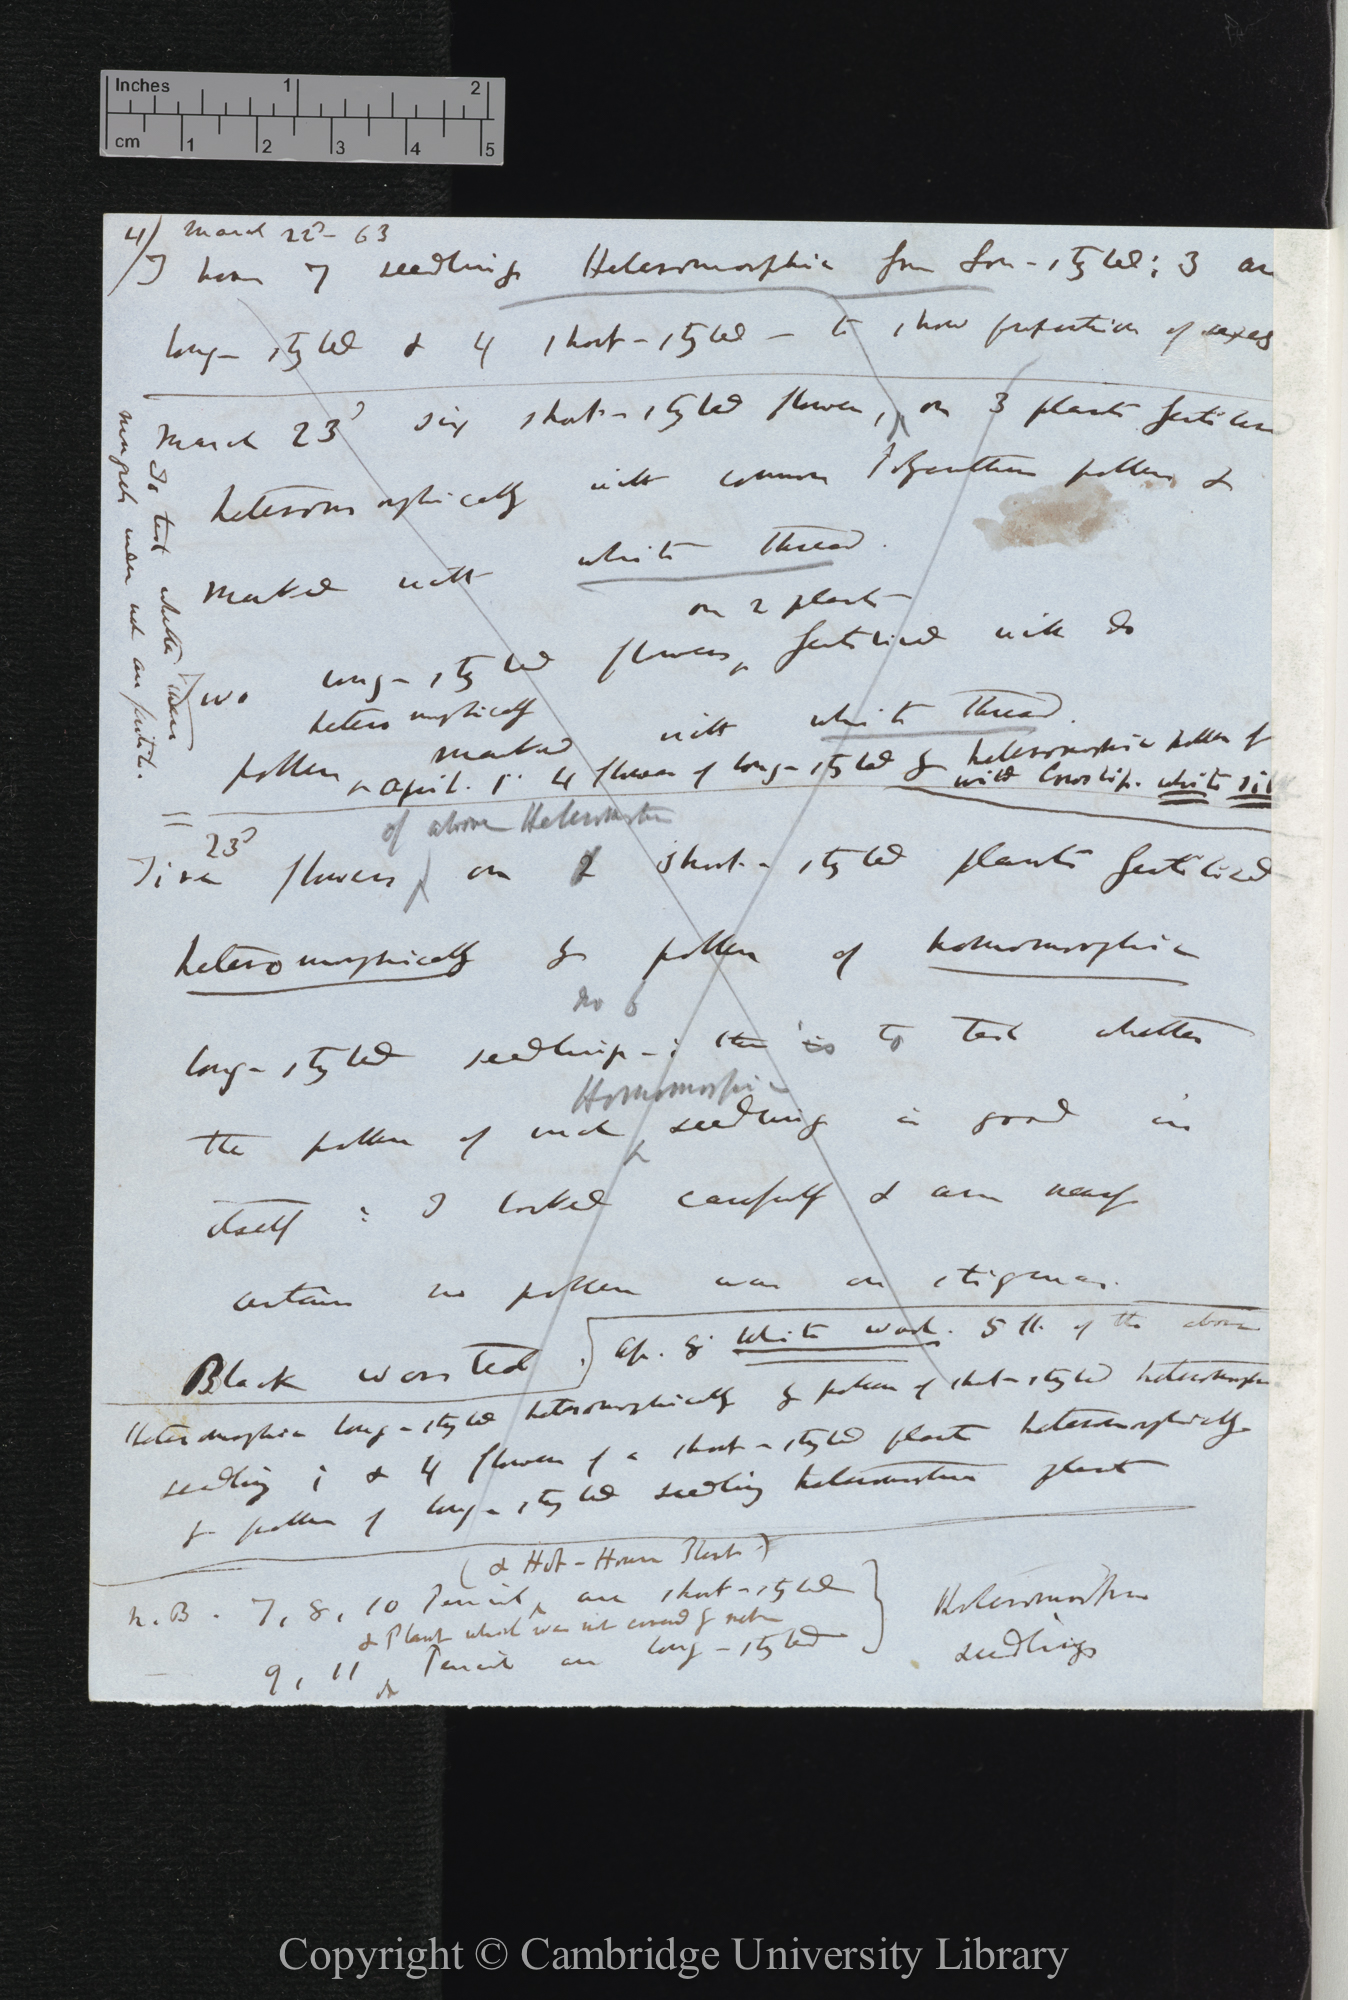 Inches 1 2
cm 1 2 3 4 5
4) March 22d - 63
I have 7 seedlings Heteromorphic from Lon-styled; 3 are
long-styled & 4 short-styled — to show proportion of sexes
March 23d six short-styled flowers, on 3 plants fertilised
heteromorphically with common Polyanthus pollen &
marked with white thread.
on 2 plants
Two long-styled flowers, fertilised with do
heteromorphically
pollen marked with white thread.
April. 1s 4 flowers of long-styled by heteromorphic pollen of
wild Cowslip. white silk
do test whether these
mongrels when not are fertile.
of above Heteromorphic
23d
Five flowers on 2 short-styled plants fertilised
heteromorphically by pollen of homomorphic
no 6
long-styled seedling—: this is to test whether
Homomorphic
the pollen of such seedling is good in
itself: I looked carefully & am nearly
certain no pollen was on stigmas.
Black worsted. Ap. 8. White wool. 5 fl. of the above
Heteromorphic long-styled heteromorphically by pollen of short-styled heteromorphic
seedling; & 4 flowers of a short-styled plant heteromorphically
by pollen of long-styled seedling heteromorphic plant
(& Hot-House Plant)
N.B. 7, 8, 10 Pencil, are short-styled
& Plant which was not covered by net
9, 11, Pencil are long-styled
Heteromorphic
seedlings
Copyright © Cambridge University Library